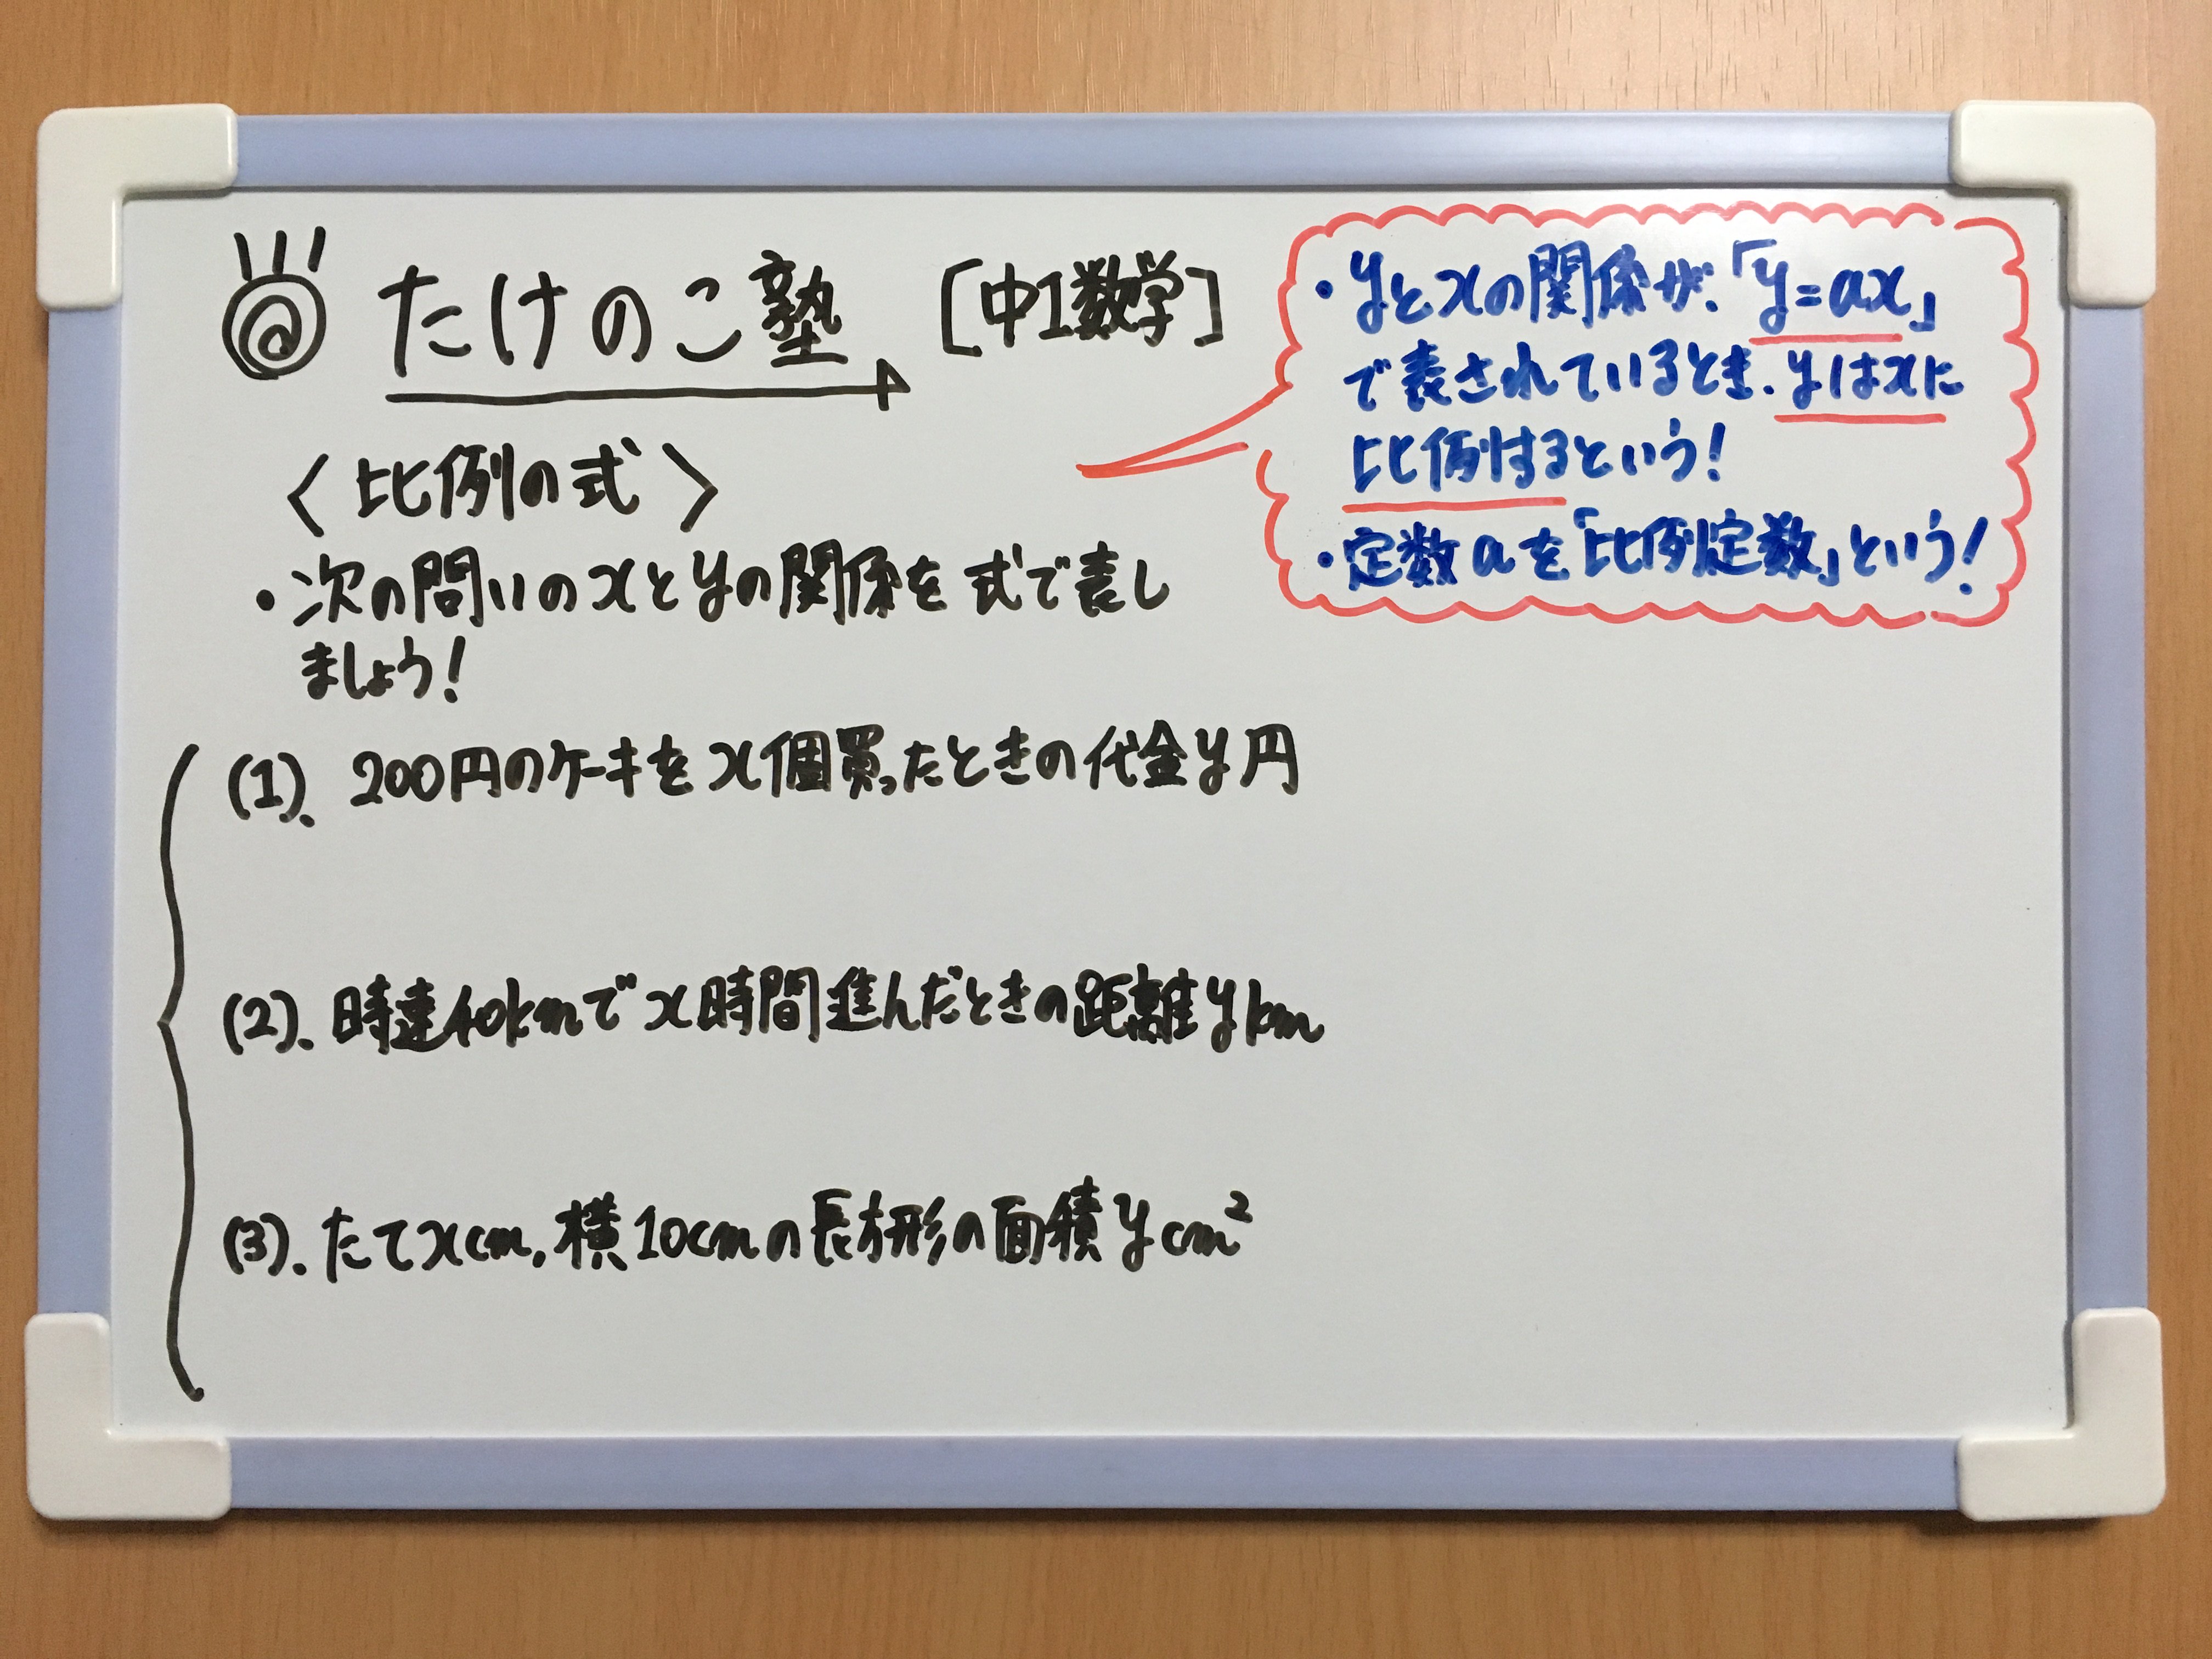 たけのこ塾 [中1数学]
・yとxの関係が、「y=ax」
で表されているとき、yはxに
比例するという!
・定数aを「比例定数」という!
〈比例の式〉
・次の問いのxとyの関係を式で表し
ましょう!
(1)、200円のケーキをx個買ったときの代金y円
(2)、時速40kmでx時間進んだときの距離ykm
(3)、たてxcm、横10cmの長方形の面積ycm²